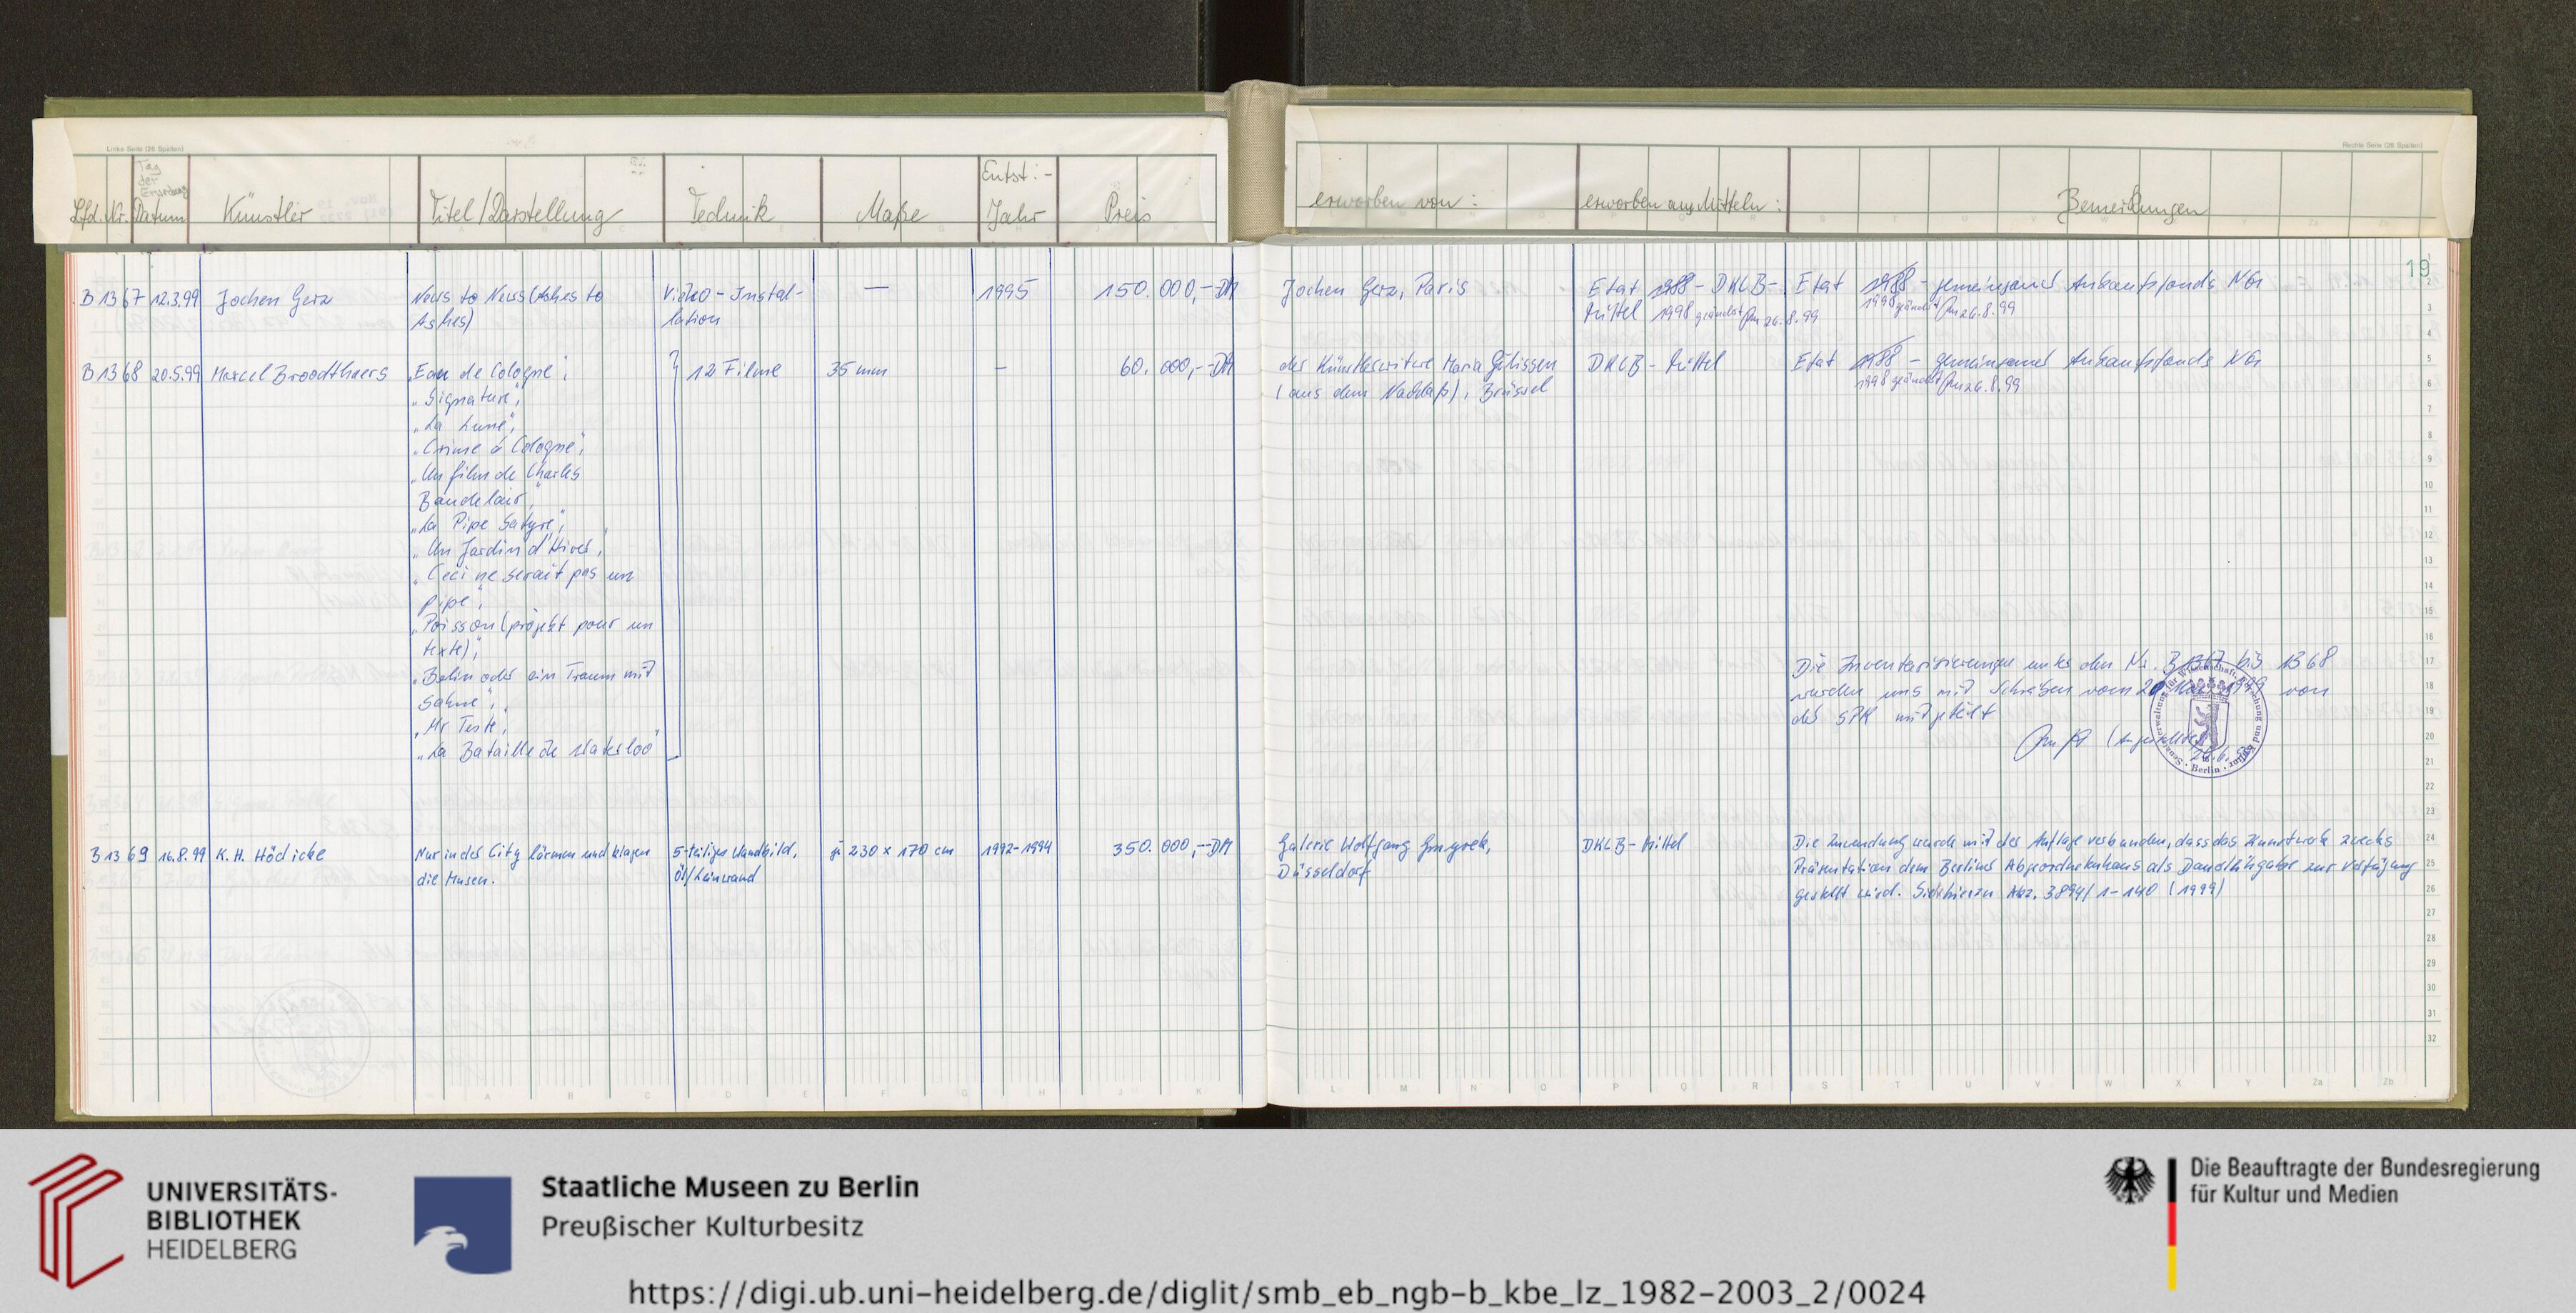 Linke Seite (26 Spalten)
Rechte Seite (26 Spalten)
Lfd. Nr. Tag der Datum Künstler Titel/Darstellung Technik Maße Entst.- Jahr Preis
erworben von: erworben aus Mitteln: Bemerkungen
19
B 1367 12.3.99 Jochen Gerz News to News (Ashes to Video-Instal- — 1995 150.000,- DM Jochen Gerz, Paris Etat 1988 - DKLB- Etat 1988 - gemeinsamer Ankaufsfonds NGr
Ashes) lation Mittel 1998 geändert 26.8.99 1998 geändert 26.8.99
B 1368 20.5.99 Marcel Broodthaers „Eau de Cologne", 12 Filme 35 mm — 60.000,- DM der Künstlerwitwe Maria Gilissen DKLB-Mittel Etat 1988 - gemeinsamer Ankaufsfonds NGr
„Signature", (aus dem Nachlaß), Brüssel 1998 geändert 26.8.99
„La Lune",
„Crime à Cologne",
„Un film de Charles
Baudelair",
„La Pipe Satyre",
„Un Jardin d'Hiver,
„Ceci ne serait pas un
pipe",
„Poisson (projekt pour un
texte)",
„Berlin oder ein Traum mit
Sahne",
„Mr Teste,
„La Bataille de Waterloo"
Die Inventarisierungen unter den Nr. B 1367 bis 1368
wurden uns mit Schreiben vom 20. Mai 1999 von
der SPK mitgeteilt
(Angestellte)
Senatsverwaltung für Wissenschaft, Forschung und Kultur · Berlin ·
B 1369 16.8.99 K. H. Hödicke Nur in der City lärmen und klagen 5-teiliges Wandbild, je 230 x 170 cm 1992-1994 350.000,- DM Galerie Wolfgang Gmyrek, DKLB-Mittel Die Zuwendung wurde mit der Auflage verbunden, dass das Kunstwerk zwecks
die Musen. Öl/Leinwand Düsseldorf Präsentation dem Berliner Abgeordnetenhaus als Dauerleihgabe zur Verfügung
gestellt wird. Siehe hierzu Akz. 3894/1-140 (1999)
UNIVERSITÄTS-
BIBLIOTHEK
HEIDELBERG
Staatliche Museen zu Berlin
Preußischer Kulturbesitz
Die Beauftragte der Bundesregierung
für Kultur und Medien
https://digi.ub.uni-heidelberg.de/diglit/smb_eb_ngb-b_kbe_lz_1982-2003_2/0024